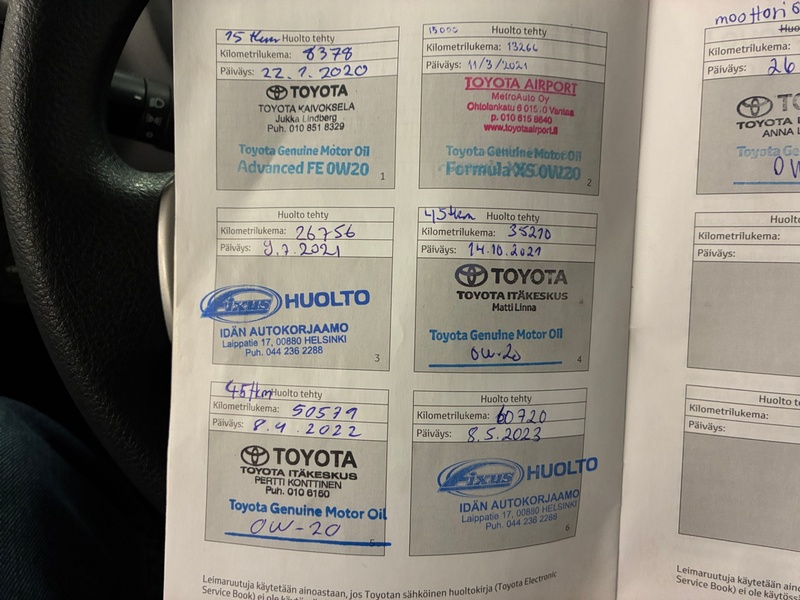 15 tkm Huolto tehty
Kilometrilukema: 8378
Päiväys: 22.1.2020
TOYOTA
TOYOTA KAIVOKSELA
Jukka Lindberg
Puh. 010 851 8329
Toyota Genuine Motor Oil
Advanced FE 0W20
1
15000 Huolto tehty
Kilometrilukema: 13266
Päiväys: 11/3/2021
TOYOTA AIRPORT
MetroAuto Oy
Ohtolankatu 6 01510 Vantaa
p. 010 615 8640
www.toyotaairport.fi
Toyota Genuine Motor Oil
Formula XS 0W20
2
Huolto tehty
Kilometrilukema: 26756
Päiväys: 9.7.2021
Fixus HUOLTO
IDÄN AUTOKORJAAMO
Laippatie 17, 00880 HELSINKI
Puh. 044 236 2288
3
45tkm Huolto tehty
Kilometrilukema: 35210
Päiväys: 14.10.2021
TOYOTA
TOYOTA ITÄKESKUS
Matti Linna
Toyota Genuine Motor Oil
0W-20
4
45tkm Huolto tehty
Kilometrilukema: 50579
Päiväys: 8.4.2022
TOYOTA
TOYOTA ITÄKESKUS
PERTTI KONTTINEN
Puh. 010 6150
Toyota Genuine Motor Oil
0W-20
5
Huolto tehty
Kilometrilukema: 60720
Päiväys: 8.5.2023
Fixus HUOLTO
IDÄN AUTOKORJAAMO
Laippatie 17, 00880 HELSINKI
Puh. 044 236 2288
6
Leimaruutuja käytetään ainoastaan, jos Toyotan sähköinen huoltokirja (Toyota Electronic
Service Book) ei ole
moottori
Huo
Kilometrilukema:
Päiväys: 26
TOYOTA
ANNA L
Toyota Ge
0W
Huolto
Kilometrilukema:
Päiväys:
Huolto te
Kilometrilukema:
Päiväys:
Leimaruutuja käytetään ainoast
Service Book) ei ole käytöss